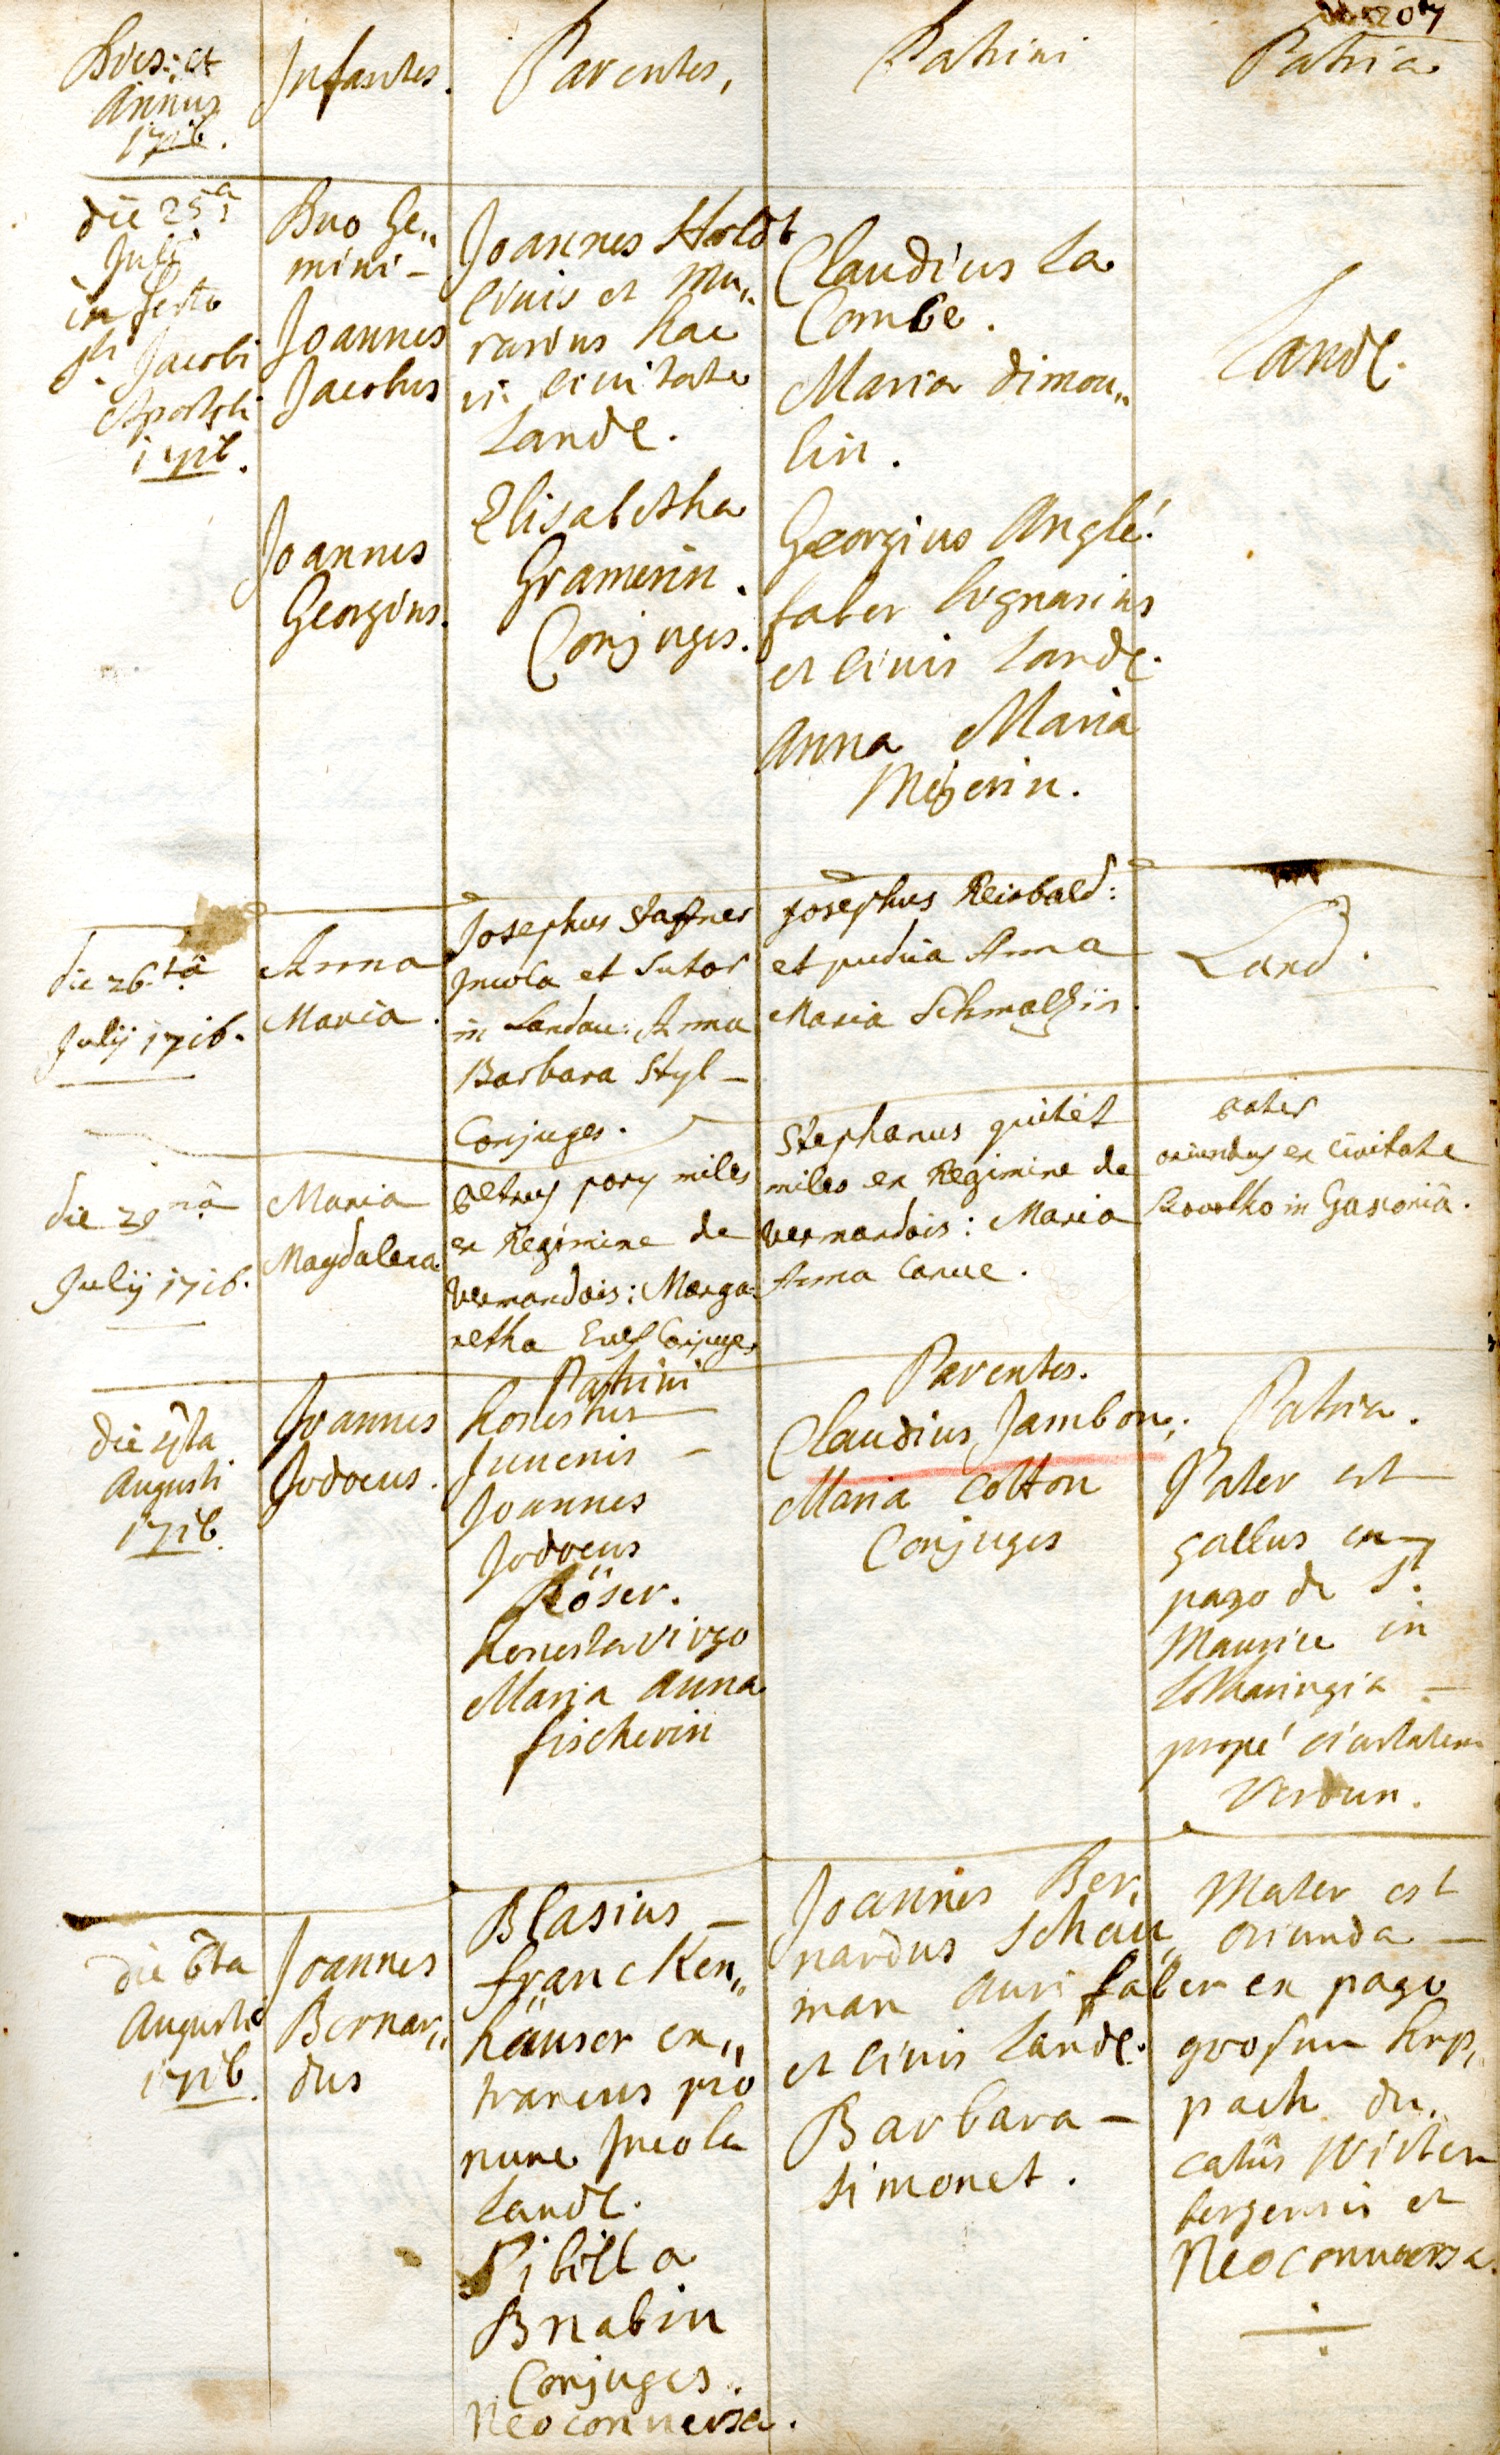 207
Dies et
Annus
1716.
Infantes.
Parentes,
Patrini
Patria
die 25ª
Julii
in festo
Sti Jacobi
Apostoli
1716.
Duo Ge„
mini –
Joannes
Jacobus
Joannes
Georgius.
Joannes Holdt
civis et mu„
rarius hac
in civitate
Landl.
Elisabetha
Gramerin.
Conjuges.
Claudius La
Combe.
Maria dimou„
lin.
Georgius Anglé.
faber lignarius
et civis Landl.
Anna Maria
Meÿerin.
Landl.
die 26.tâ
Julij 1716.
Anna
Maria.
Josephus
Incola et Sutor
in Landau: Anna
Barbara Styl –
Conjuges.
Josephus Reinbald:
et pudica Anna
Maria Schmalzin.
Land.
die 29 nâ
Julij 1716.
Maria
Magdalena
Petrus pory miles
ex Regimine de
Vermandois: Marga:
retha Conjuges
Stephanus quitét
miles ex Regimine de
Vermandois: Maria
Anna Carue.
Pater
oriundus ex Civitate
in Gasconiâ.
die 4ta
Augusti
1716.
Joannes
Jodocus.
Patrini
honestus
Juvenis –
Joannes
Jodocus
Röser.
honesta virgo
Maria Anna
fischerin
Parentes.
Claudius Jambon,
Maria Cotton
Conjuges
Patria.
Pater est
gallus ex
pago de St.
Maurice in
Lotharingia –
propé civitatem
Verdun.
die 6ta
Augusti
1716.
Joannes
Bernar„
dus
Blasius –
francken„
häuser ex„
traneus pro
nunc Incola
Landl.
Sibilla
Bnabin
Conjuges.
Neoconversa.
Joannes Ber„
nardus Schau„
man aurifaber
et civis Landl.
Barbara –
Simonet.
Mater est
oriunda –
ex pago
grossen
pach du„
catûs Wirten
bergensis et
Neoconversa.